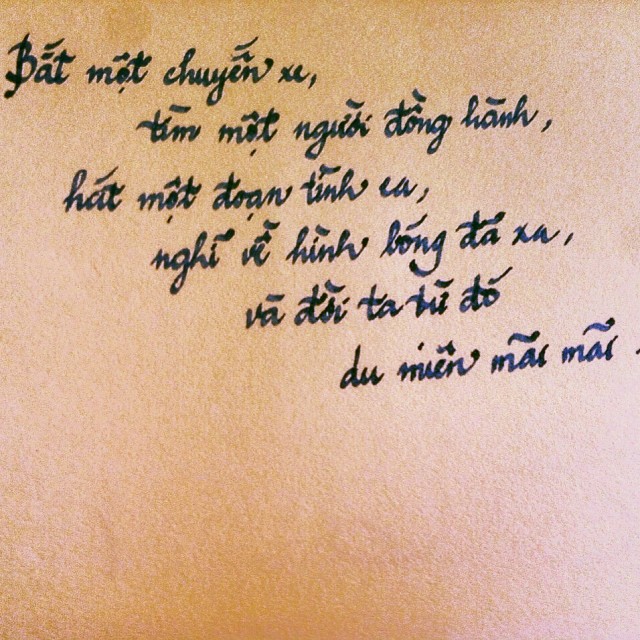 Bắt một chuyến xe,
tìm một người đồng hành,
hát một đoạn tình ca,
nghĩ về hình bóng đã xa,
và đời ta từ đó
du miên mãi mãi.